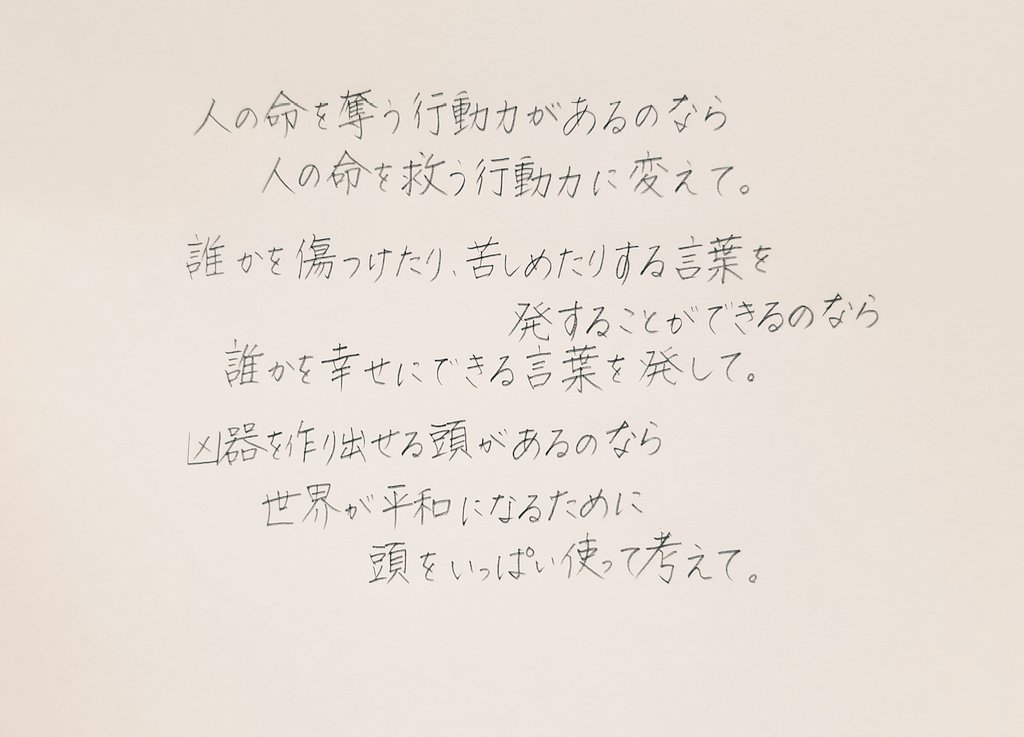 人の命を奪う行動力があるのなら
人の命を救う行動力に変えて。
誰かを傷つけたり、苦しめたりする言葉を
発することができるのなら
誰かを幸せにできる言葉を発して。
凶器を作り出せる頭があるのなら
世界が平和になるために
頭をいっぱい使って考えて。